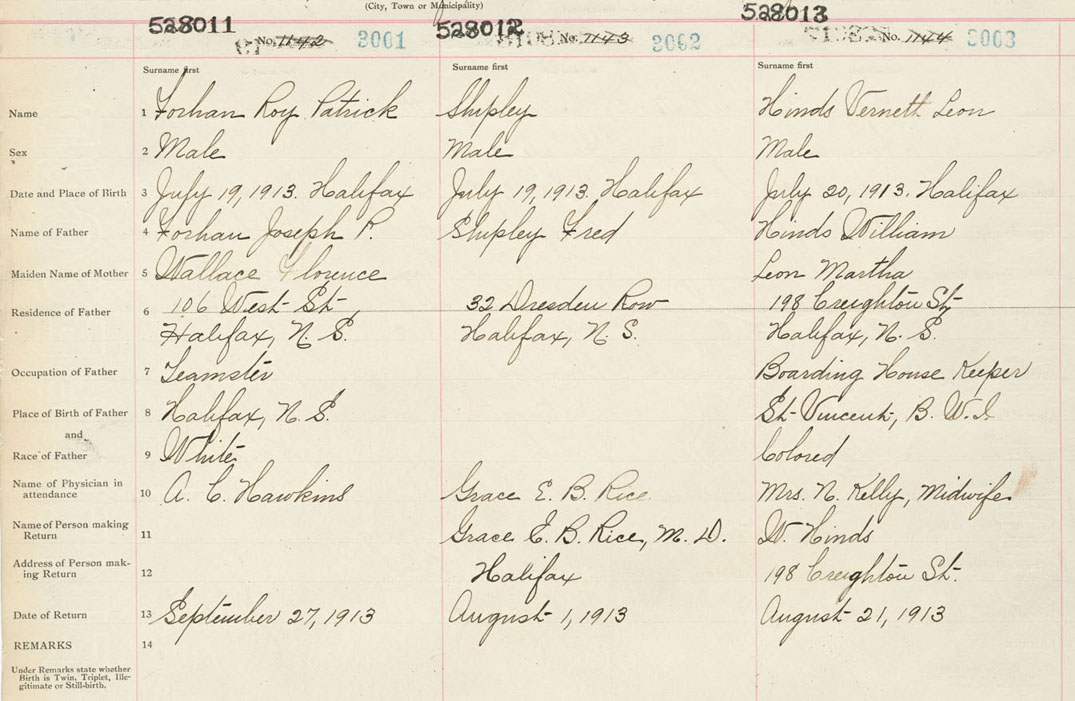 (City, Town or Municipality)
528011 528012 528013
No. 1142 2001 No. 1143 2002 No. 1144 2003
Surname first Surname first Surname first
Name 1 Forhan Roy Patrick Shipley Hinds Verneth Leon
Sex 2 Male Male Male
Date and Place of Birth 3 July 19, 1913. Halifax July 19, 1913. Halifax July 20, 1913. Halifax
Name of Father 4 Forhan Joseph P. Shipley Fred Hinds William
Maiden Name of Mother 5 Wallace Florence Leon Martha
Residence of Father 6 106 West St. 32 Dresden Row 198 Creighton St.
Halifax, N. S. Halifax, N. S. Halifax, N. S.
Occupation of Father 7 Teamster Boarding House Keeper
Place of Birth of Father 8 Halifax, N. S. St. Vincent, B. W. I.
and
Race of Father 9 White Colored
Name of Physician in
attendance 10 A. C. Hawkins Grace E. B. Rice Mrs. N. Kelly, Midwife
Name of Person making
Return 11 Grace E. B. Rice, M. D. W. Hinds
Address of Person mak-
ing Return 12 Halifax 198 Creighton St.
Date of Return 13 September 27, 1913 August 1, 1913 August 21, 1913
REMARKS 14
Under Remarks state whether
Birth is Twin, Triplet, Ille-
gitimate or Still-birth.